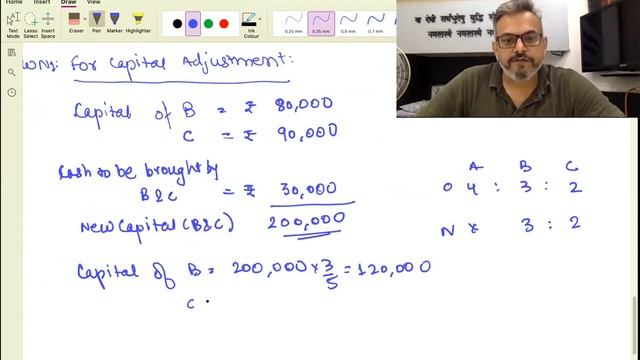 File Home Insert Draw View Help
Type Lasso Select Insert Space Eraser Pen Marker Highlighter Ink Colour 0.25 mm 0.35 mm 0.5 mm 0.7 mm
For Capital Adjustment:
Capital of B = ₹ 80,000
C = ₹ 90,000
Cash to be brought by
B&C = ₹ 30,000
New Capital (B&C) 200,000
A B C
O 4 : 3 : 2
N × 3 : 2
Capital of B = 200,000 × 3/5 = 120,000
C